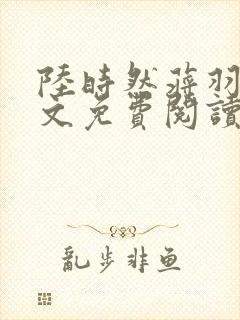 陸時然蒋羽
文免費閱讀
亂步非鱼